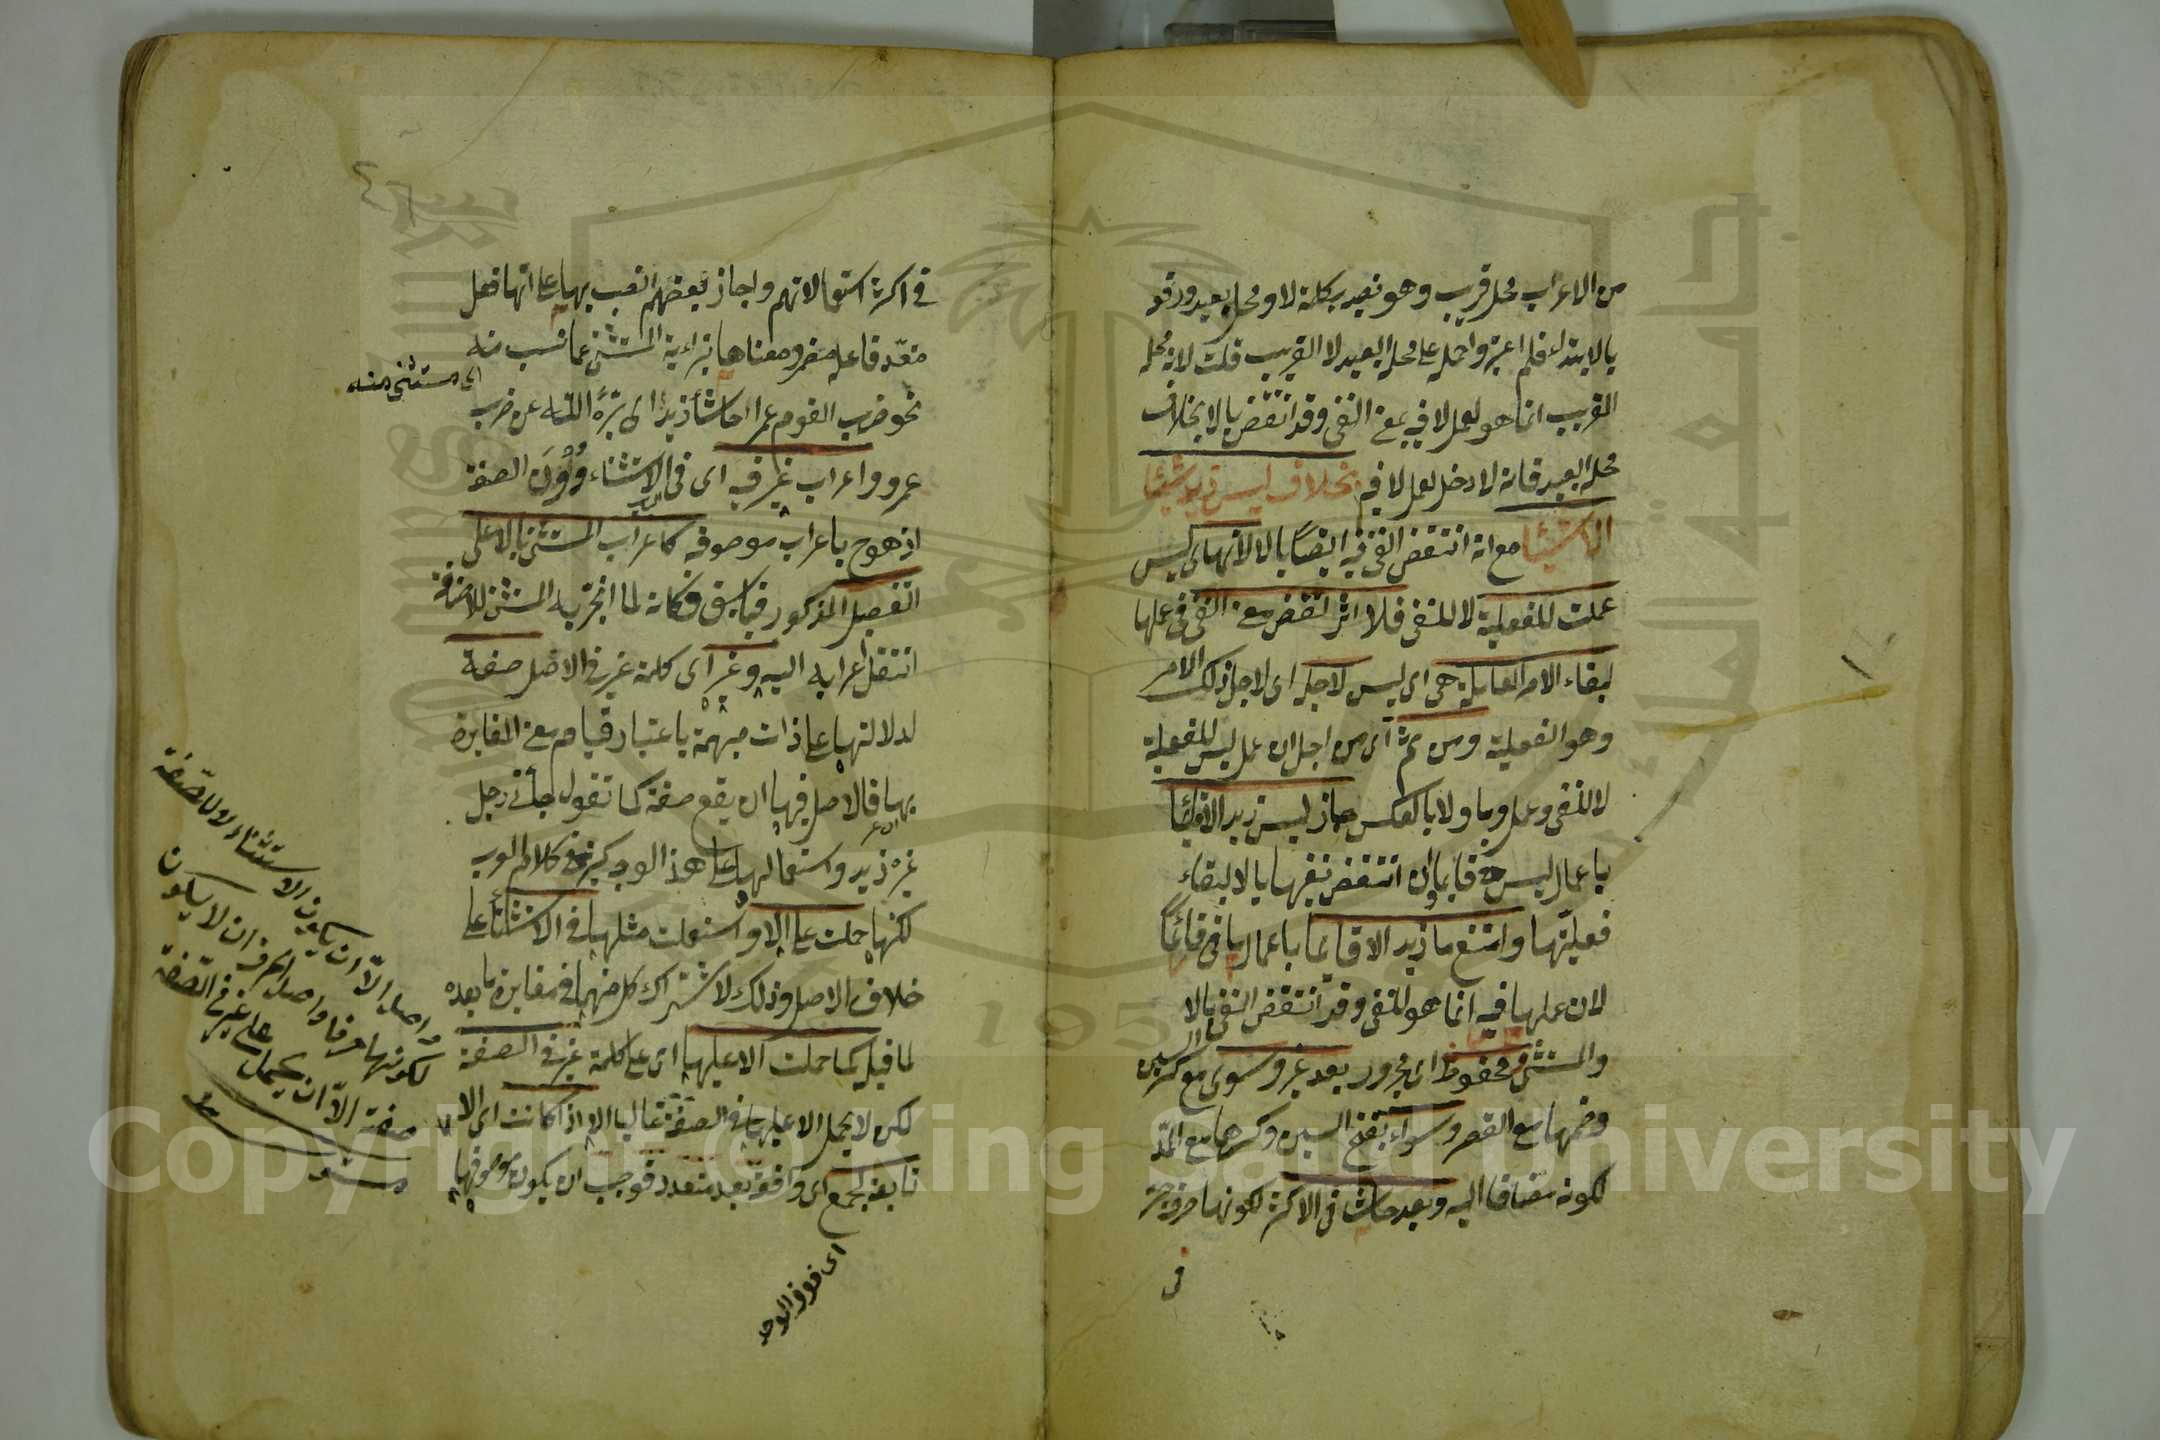 من الاعراب محل قريب وهو نصبه بكلمة لا ومحل بعيد ورفع
بالابتداء فلم اعتبر واحمل على محله البعيد لا القريب قلت لان محله
القريب انما هو لعمل لا فيه بمعنى النفى وقد انتقض بالا بخلاف
محله البعيد فانه لا دخل لعمل لا فيه بخلاف ليس زيد شيئا
الا شيئا مع انه انتقض النفى فيه ايضا بالا لانها اى ليس
عملت للفعلية لا للنفى فلا اثر لنقض معنى النفى فى عملها
لبقاء الامر العاملة هى اى ليس لاجله اى لاجل ذلك الامر
وهو الفعلية ومن ثم اى من اجل ان عمل ليس للفعلية
لا للنفى وعمل ما ولا بالعكس جاز ليس زيد الا قائما
باعمال ليس فى قائما وان انتقض نفيها بالا لبقاء
فعليتها وامتنع ما زيد الا قائما باعمال ما فى قائما
لان عملها فيه انما هو للنفى وقد انتقض النفى بالا
والمستثنى مخفوض اى مجرور بعد غير وسوى مع كسر السين
وضمها مع القصر وسواء بفتح السين وكسرها مع المد
لكونه مضافا اليه وبعد حاشا فى الاكثر لكونها حرف جر
فى
فى اكثر استعمالاتهم واجاز بعضهم النصب بها على انها فعل
متعد فاعله مضمر ومعناها تبرئة المستثنى عما نسب منه
الى مستثنى منه
نحو ضرب القوم عمرا حاشا زيدا اى برأه الله عن ضرب
عمرو واعراب غير فيه اى فى الاستثناء دون الصفة
اذ هو ح باعراب موصوفه كاعراب المستثنى بالا على
التفصيل المذكور فيما سبق فكانه لما انجر به المستثنى للاضافة
انتقل اعرابه اليه وغير اى كلمة غير فى الاصل صفة
لدلالتها على ذات مبهمة باعتبار قيام معنى المغايرة
بها فالاصل فيها ان يقع صفة كما تقول جاءنى رجل
غير زيد واستعمالها على هذا الوجه كثير فى كلام العرب
لكنها حملت على الا واستعملت مثلها فى الاستثناء على
خلاف الاصل وذلك لاشتراك كل منهما فى مغايرة ما بعده
لما قبله كما حملت الا عليها اى على كلمة غير فى الصفة
لكن لا يحمل الا عليها فى الصفة غالبا الا اذا كانت اى الا
تابعة لجمع اى واقعة بعد متعدد فوجب ان يكون موصوفها
اى فوق الواحد
واصل الا ان يكون الاستثناء لا للصفة
لكونها حرفا واصل الحرف ان لا يكون
صفة الا ان يحمل على غير فى الصفة